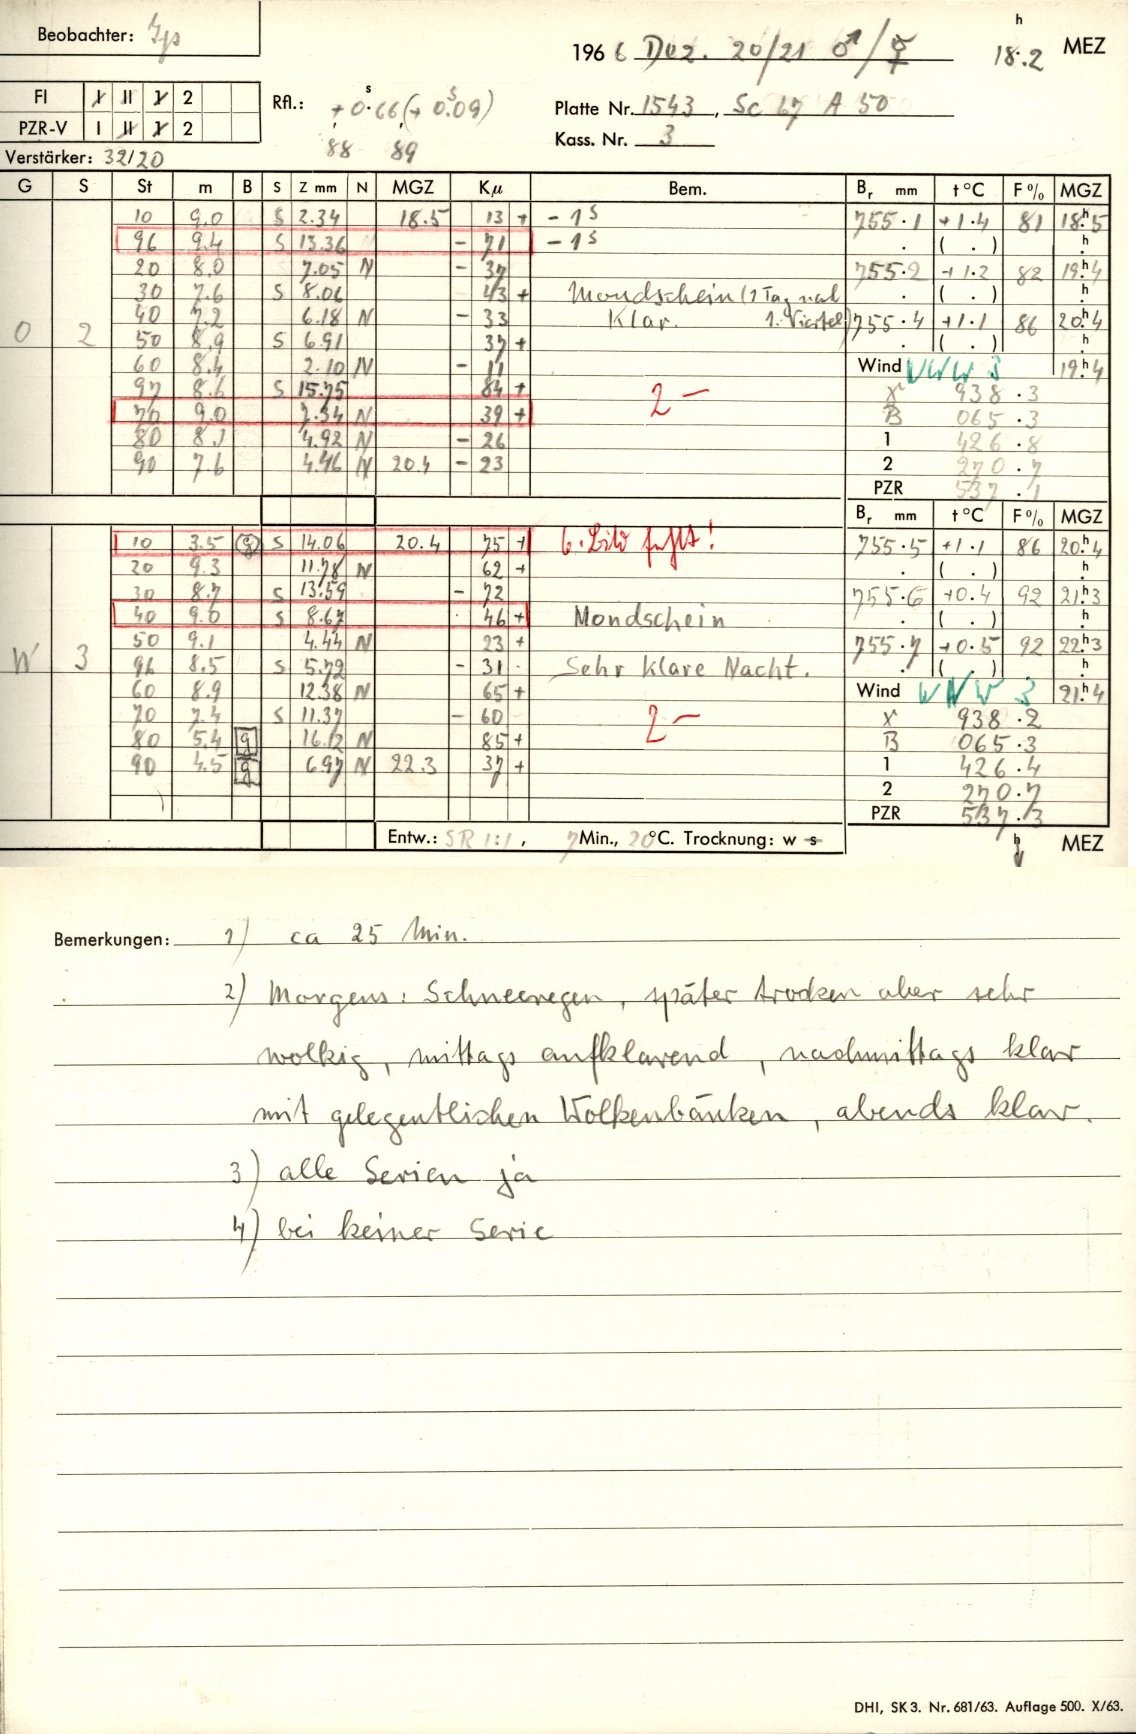 Beobachter: Zps
1966 Dez. 20/21 ♂/☿ 18.2 h MEZ
FI I II 1 2
PZR-V I II 1 2
Rfl.: +0.66 s (+0.09 s)
88 89
Platte Nr. 1543, Sc 67 A 50
Kass. Nr. 3
Verstärker: 32/20
G S St m B S Z mm N MGZ Kμ Bem. Br mm t °C F % MGZ
10 9.0 S 2.34 18.5 13 + - 1s 755.1 +1.4 81 18h5
96 9.4 S 13.36 - 71 - 1s . ( . ) h
20 8.0 7.05 N - 37 755.2 +1.2 82 19h4
30 7.6 S 8.06 43 + Mondschein (1 Tag nach . ( . ) h
O 2 40 7.2 6.18 N - 33 Klar. 1. Viertel) 755.4 +1.1 86 20h4
50 8.9 S 6.91 37 + . ( . ) h
60 8.4 2.10 N - 11 Wind WNW 3 19h4
97 8.6 S 15.75 84 + 2- γ 938.3
70 9.0 7.34 N 39 + B 065.3
80 8.1 4.92 N - 26 1 426.8
90 7.6 4.46 N 20.4 - 23 2 270.7
PZR 537.1
Br mm t °C F % MGZ
10 3.5 (g) S 14.06 20.4 75 + 6. Bild fehlt! 755.5 +1.1 86 20h4
20 9.3 11.78 N 62 + . ( . ) h
30 8.7 S 13.59 - 72 755.6 +0.4 92 21h3
40 9.0 S 8.67 46 + Mondschein . ( . ) h
50 9.1 4.44 N 23 + 755.7 +0.5 92 22h3
W 3 96 8.5 S 5.72 - 31 Sehr klare Nacht. . ( . ) h
60 8.9 12.38 N 65 + Wind WNW 3 21h4
70 7.4 S 11.37 - 60 2- γ 938.2
80 5.4 g 16.12 N 85 + B 065.3
90 4.5 g 6.97 N 22.3 37 + 1 426.4
2 270.7
PZR 537.3
Entw.: SR 1:1, 7 Min., 20°C. Trocknung: w s h MEZ
Bemerkungen: 1) ca 25 Min.
2) Morgens: Schneeregen, später trocken aber sehr
wolkig, mittags aufklarend, nachmittags klar
mit gelegentlichen Wolkenbänken, abends klar.
3) alle Serien ja
4) bei keiner Serie
DHI, SK 3. Nr. 681/63. Auflage 500. X/63.